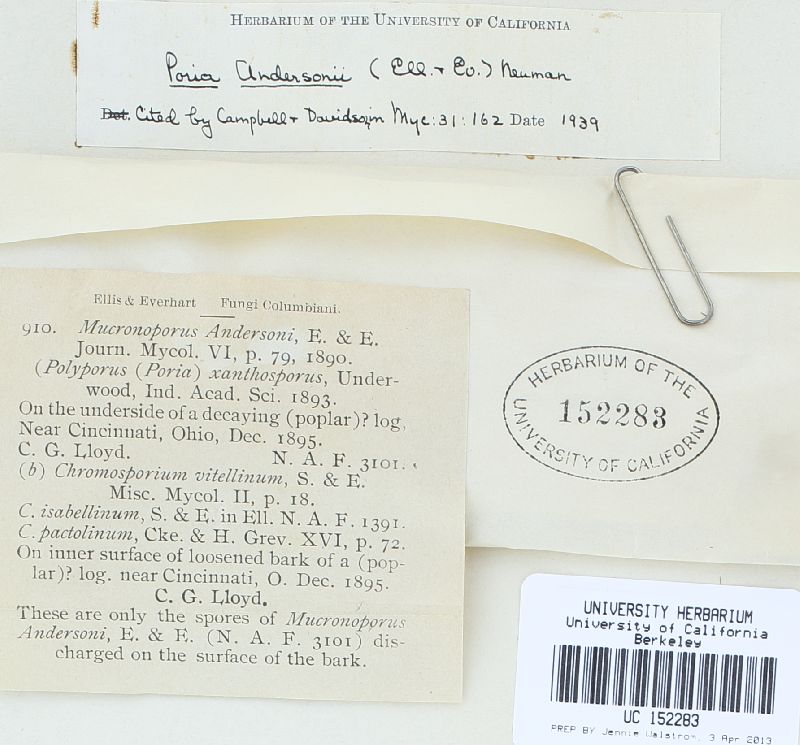 HERBARIUM OF THE UNIVERSITY OF CALIFORNIA
Poria Andersonii (Ell. + Ev.) Neuman
Det. Cited by Campbell + Davidson in Myc: 31: 162 Date 1939
Ellis & Everhart Fungi Columbiani.
910. Mucronoporus Andersoni, E. & E.
Journ. Mycol. VI, p. 79, 1890.
(Polyporus (Poria) xanthosporus, Under-
wood, Ind. Acad. Sci. 1893.
On the underside of a decaying (poplar)? log,
Near Cincinnati, Ohio, Dec. 1895.
C. G. Lloyd. N. A. F. 3101.
(b) Chromosporium vitellinum, S. & E.
Misc. Mycol. II, p. 18.
C. isabellinum, S. & E. in Ell. N. A. F. 1391.
C. pactolinum, Cke. & H. Grev. XVI, p. 72.
On inner surface of loosened bark of a (pop-
lar)? log. near Cincinnati, O. Dec. 1895.
C. G. Lloyd.
These are only the spores of Mucronoporus
Andersoni, E. & E. (N. A. F. 3101) dis-
charged on the surface of the bark.
HERBARIUM OF THE
152283
UNIVERSITY OF CALIFORNIA
UNIVERSITY HERBARIUM
University of California
Berkeley
UC 152283
PREP BY Jennie Walstrom, 3 Apr 2013